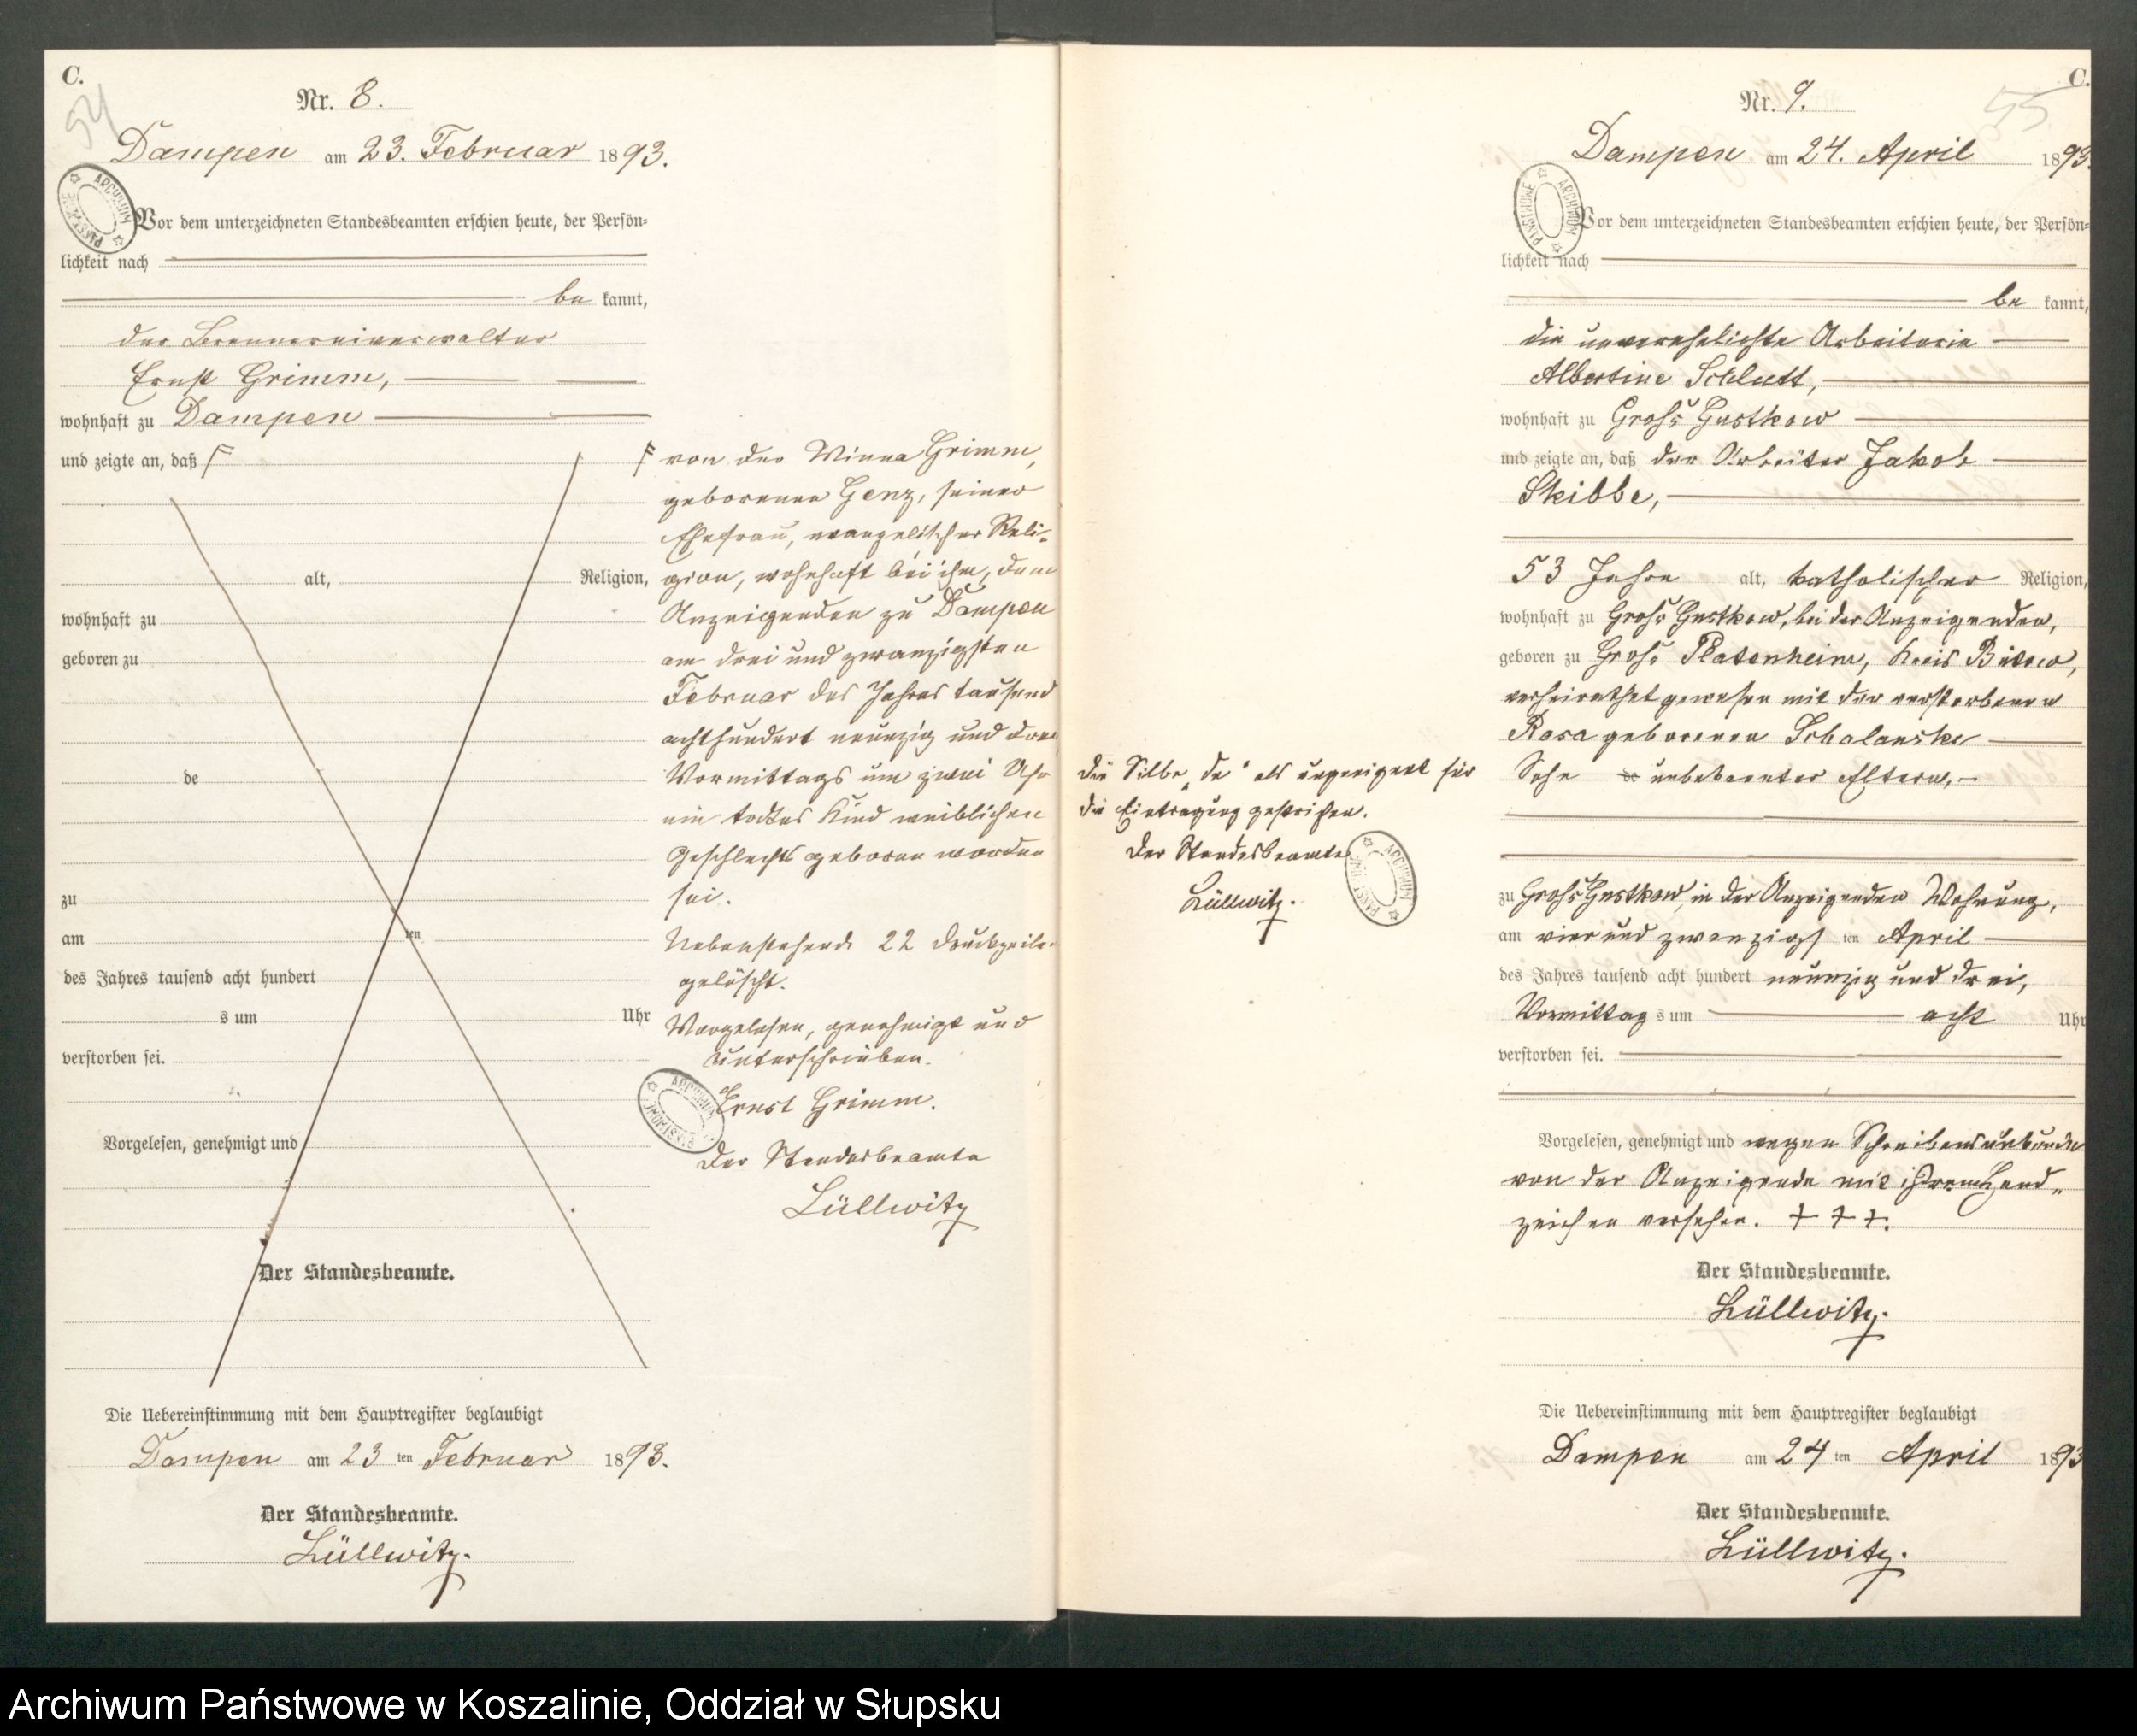 C.
54
Nr. 8.
Dampen am 23. Februar 1893.
Vor dem unterzeichneten Standesbeamten erschien heute, der Persön-
lichkeit nach
be kannt,
der Brennereiverwalter
Ernst Grimm,
wohnhaft zu Dampen
und zeigte an, daß
alt, Religion,
wohnhaft zu
geboren zu
de
zu
am ten
des Jahres tausend acht hundert
s um Uhr
verstorben sei.
Vorgelesen, genehmigt und
Der Standesbeamte.
von der Minna Grimm,
geborenen Genz, seiner
Ehefrau, evangelischer Reli-
gion, wohnhaft bei ihm, dem
Anzeigenden zu Dampen
am drei und zwanzigsten
Februar des Jahres tausend
achthundert neunzig und drei
Vormittags um zwei Uhr
ein todtes Kind weiblichen
Geschlechts geboren worden
sei.
Nebenstehende 22 Druckzeilen
gelöscht.
Vorgelesen, genehmigt und
unterschrieben.
Ernst Grimm.
Der Standesbeamte
Lüllwitz
Die Uebereinstimmung mit dem Hauptregister beglaubigt
Dampen am 23 ten Februar 1893.
Der Standesbeamte.
Lüllwitz.
C.
55
Nr. 9.
Dampen am 24. April 1893.
Vor dem unterzeichneten Standesbeamten erschien heute, der Persön-
lichkeit nach
be kannt,
die unverehelichte Arbeiterin
Albertine Schlutt,
wohnhaft zu Groß Gustkow
und zeigte an, daß der Arbeiter Jakob
Skibbe,
53 Jahre alt, katholischer Religion,
wohnhaft zu Groß Gustkow, bei der Anzeigenden,
geboren zu Groß Platenheim, Kreis Bütow,
verheirathet gewesen mit der verstorbenen
Rosa geborenen Schalanske
Sohn de unbekannter Eltern,
zu Groß Gustkow, in der Anzeigenden Wohnung,
am vier und zwanzigs ten April
des Jahres tausend acht hundert neunzig und drei,
Vormittag s um acht Uhr
verstorben sei.
Vorgelesen, genehmigt und wegen Schreibensunkunde
von der Anzeigende mit ihrem Hand-
zeichen versehen. + + +.
Der Standesbeamte.
Lüllwitz.
Die Silbe „de“ als ungeeignet für
die Eintragung gestrichen.
Der Standesbeamte
Lüllwitz.
Die Uebereinstimmung mit dem Hauptregister beglaubigt
Dampen am 24 ten April 1893
Der Standesbeamte.
Lüllwitz.
Archiwum Państwowe w Koszalinie, Oddział w Słupsku